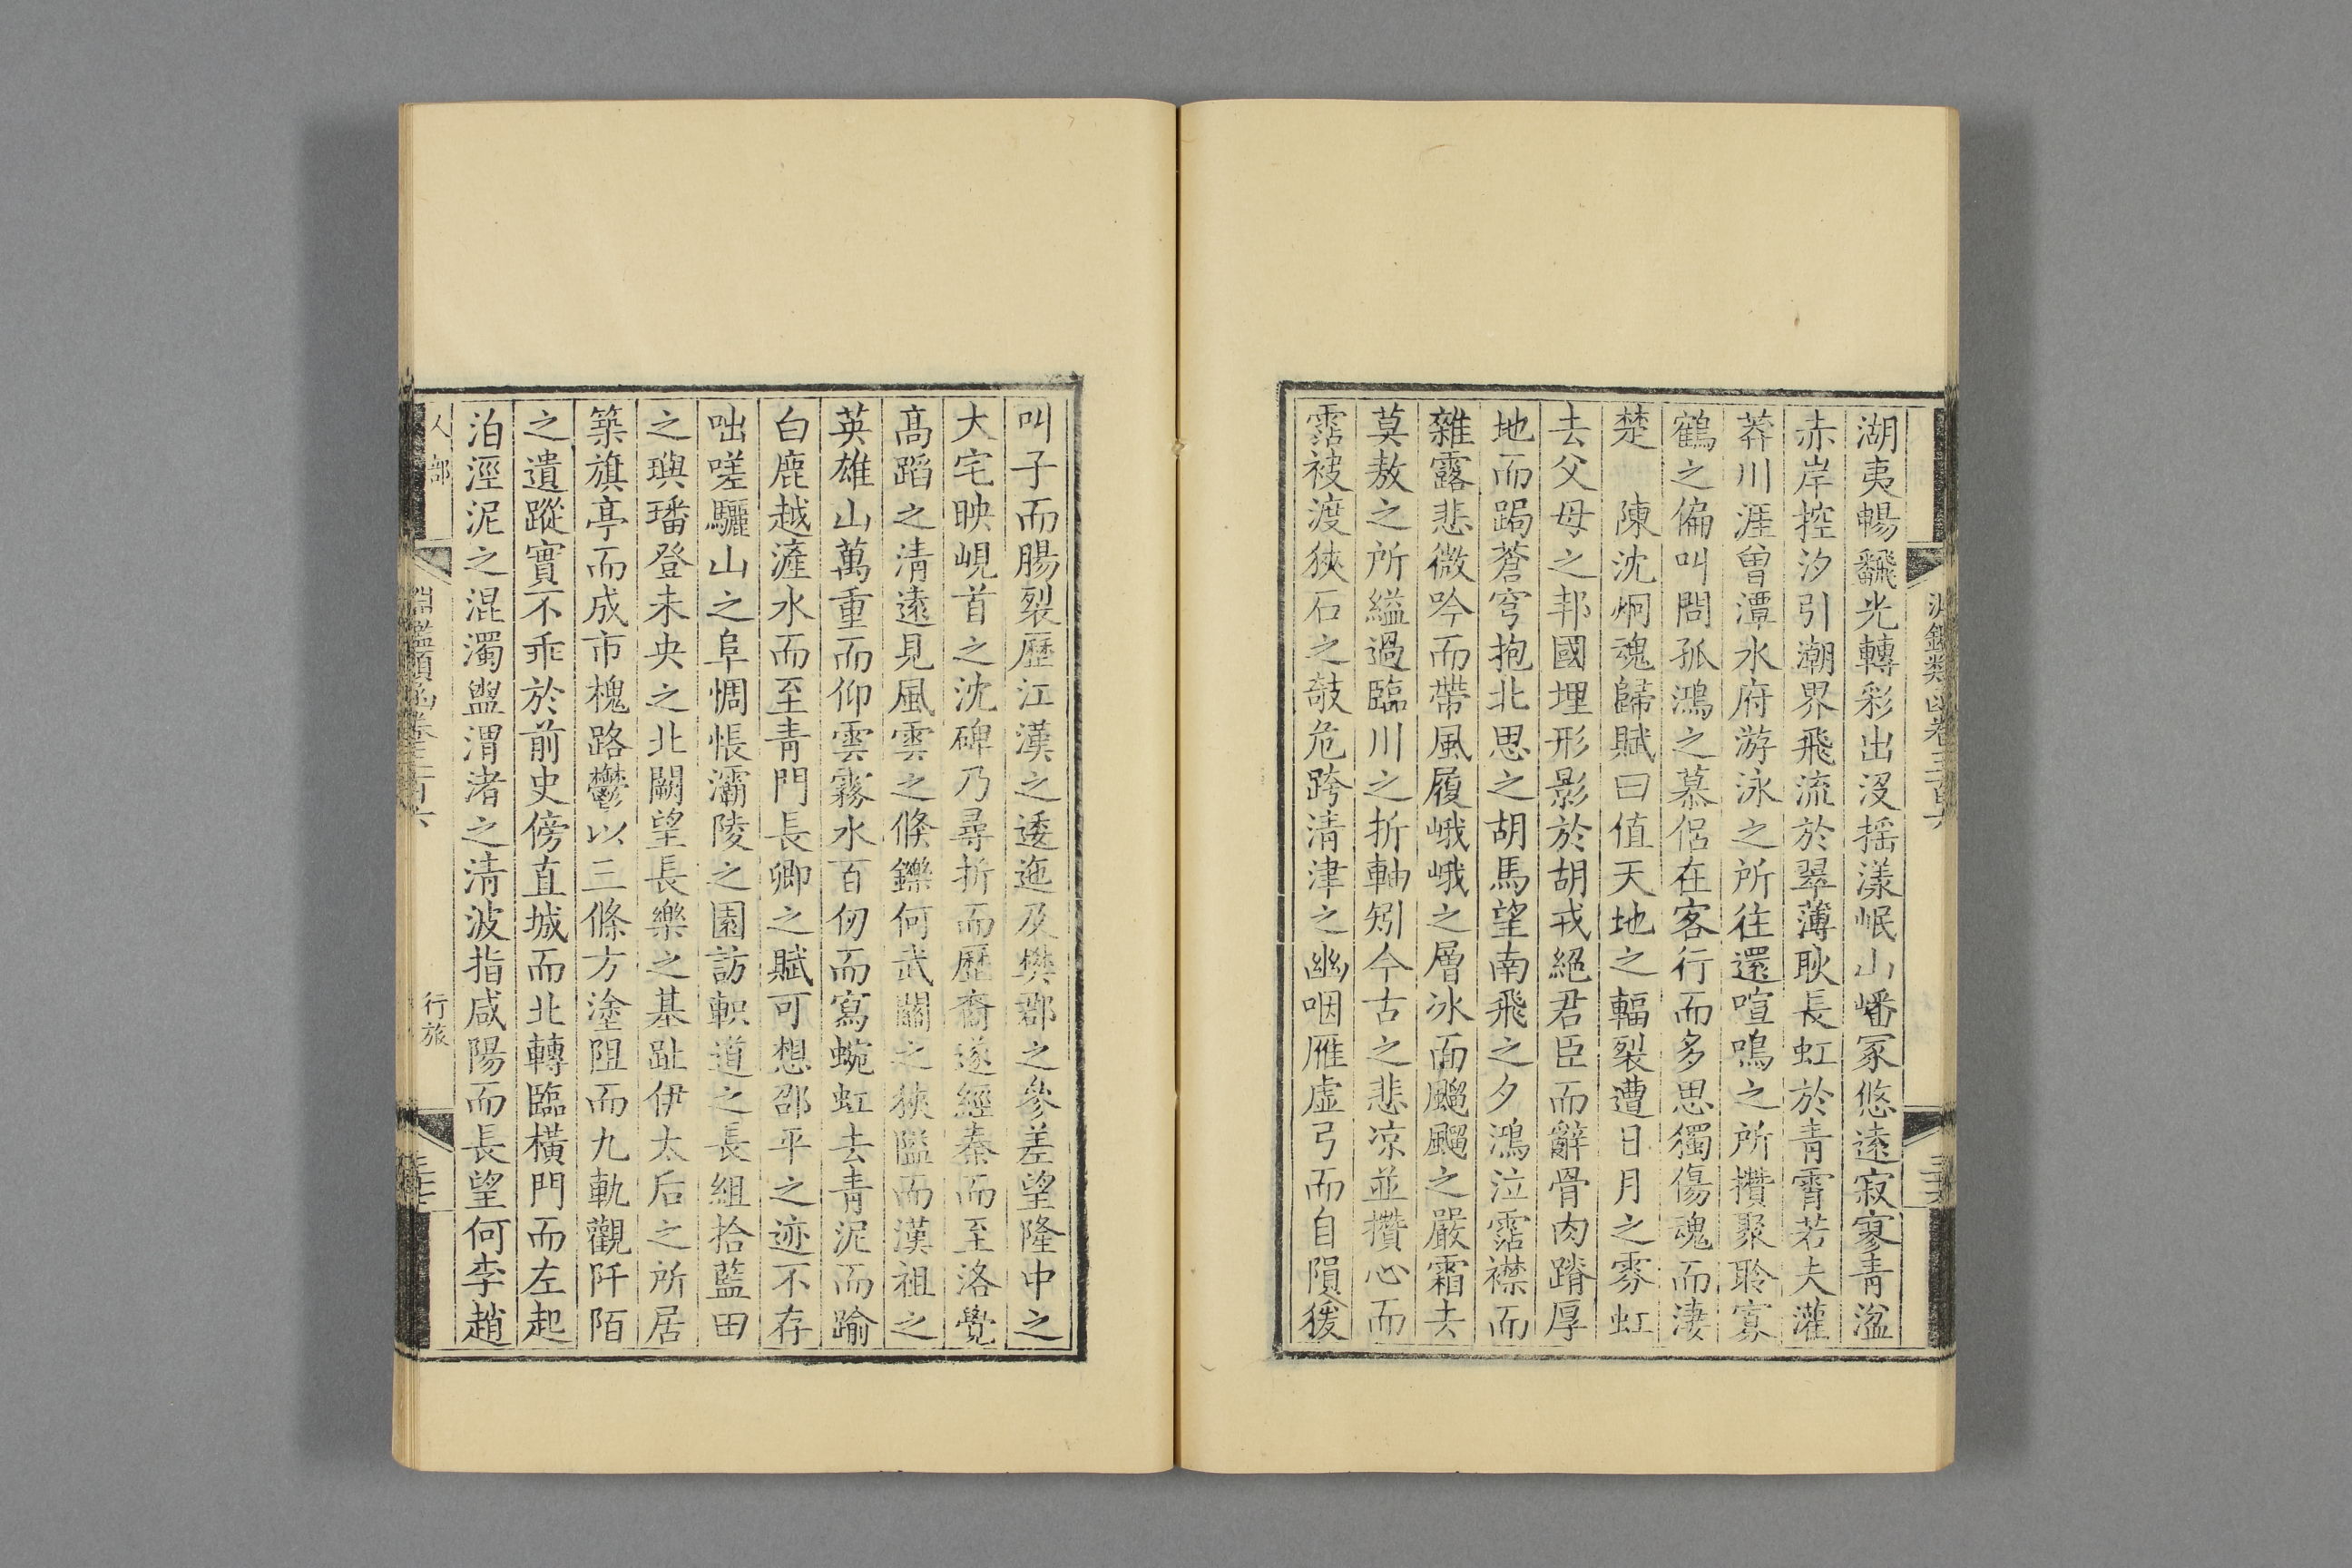 湖夷暢飜光轉彩出沒摇漾岷山嶓冢悠遠寂寥青湓
赤岸控汐引潮界飛流於翠薄耿長虹於青霄若夫灌
莽川涯曾潭水府游泳之所往還喧鳴之所攢聚聆寡
鶴之偏叫問孤鴻之慕侶在客行而多思獨傷魂而淒
楚　陳沈炯魂歸賦曰值天地之輻裂遭日月之雰虹
去父母之邦國埋形影於胡戎絕君臣而辭骨肉蹐厚
地而跼蒼穹抱北思之胡馬望南飛之夕鴻泣霑襟而
雜露悲微吟而帶風履峨峨之層冰面飂飂之嚴霜去
莫敖之所縊過臨川之折軸矧今古之悲凉並攢心而
霑被渡狹石之攲危跨清津之幽咽雁虛弓而自隕猨
叫子而腸裂歷江漢之逶迤及樊鄀之參差望隆中之
大宅映峴首之沈碑乃尋折而歷裔遂經秦而至洛覺
高蹈之清遠見風雲之倏鑠何武關之狹隘而漢祖之
英雄山萬重而仰雲霧水百仞而寫蜿虹去青泥而踰
白鹿越滻水而至青門長卿之賦可想邵平之迹不存
咄嗟驪山之阜惆悵灞陵之園訪軹道之長組拾藍田
之璵璠登未央之北闕望長樂之基趾伊太后之所居
築旗亭而成市槐路鬱以三條方塗阻而九軌觀阡陌
之遺蹤實不乖於前史傍直城而北轉臨橫門而左起
泊涇泥之混濁盥渭渚之清波指咸陽而長望何李趙
人部
行旅